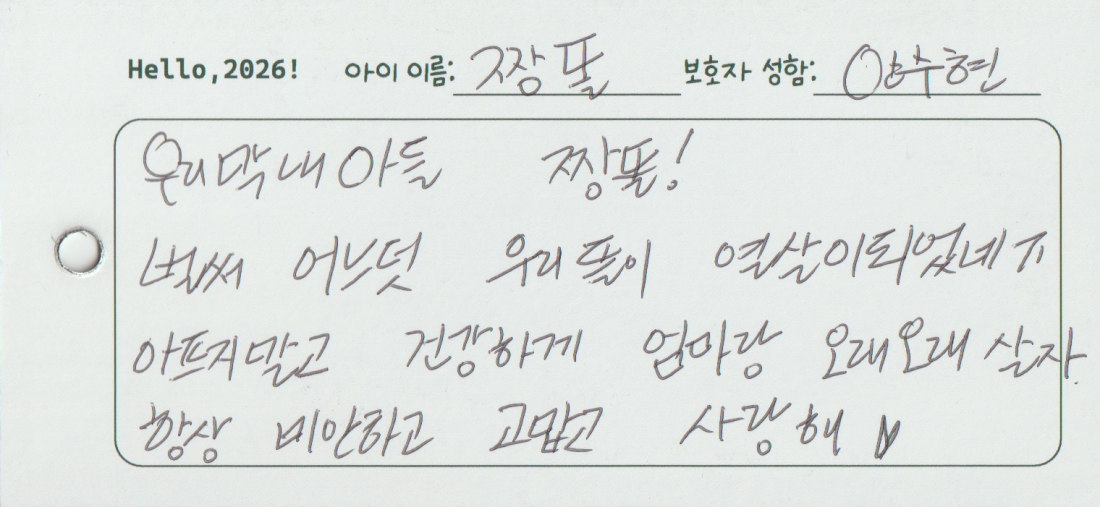 Hello,2026! 아이 이름: 짱똘 보호자 성함: 양수현
우리 막내 아들 짱똘!
벌써 어느덧 우리 똘이 열살이 되었네 ㅠ
아프지말고 건강하게 엄마랑 오래오래 살자.
항상 미안하고 고맙고 사랑해